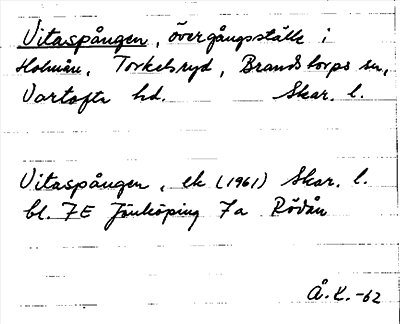 Vitaspången, övergångsställe i
Holmån, Torkelsryd, Brandstorps sn,
Vartofta hd. Skar. l.
Vitaspången, ek (1961) Skar. l.
bl. 7E Jönköping 7a Rödån
Å.K.-62